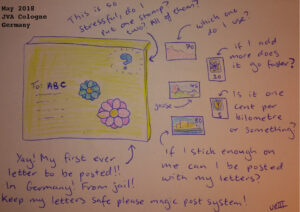 May 2018
JVA Cologne
Germany
This is so
stressful, do I
put one stamp?
two? All of them?
which one
do I use?
?
90
To: ABC
if I add
more does
it go faster?
Is it one
cent per
kilometre
or something?
Yay! My first ever
letter to be posted!!
In Germany! From jail!
Keep my letters safe please magic post system!
If I stick enough on
me can I be posted
with my letters?